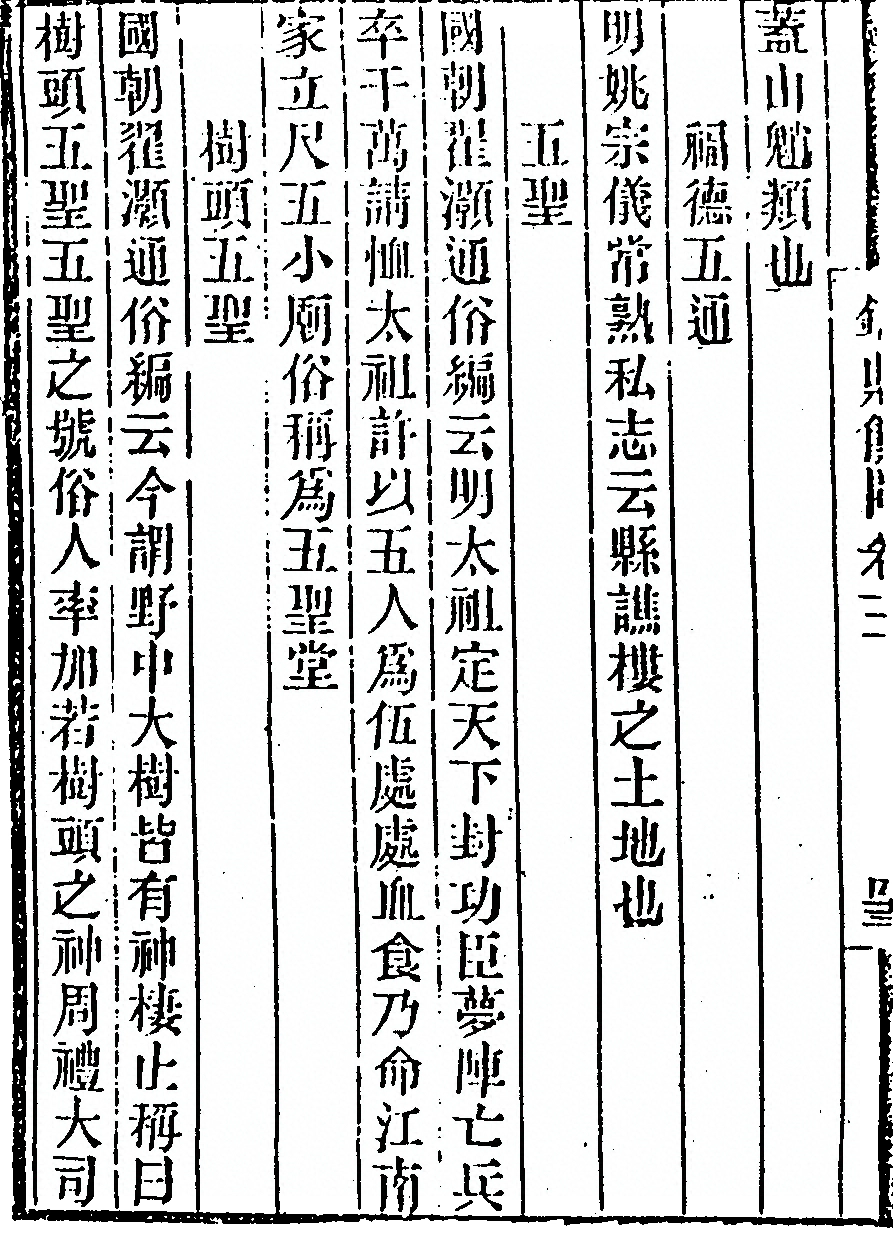 蓋山魈類也
福德五通
明姚宗儀常熟私志云縣譙樓之土地也
五聖
國朝翟灝通俗編云明太祖定天下封功臣夢陣亡兵
卒千萬請恤太祖許以五人爲伍處處血食乃命江南
家立尺五小廟俗稱爲五聖堂
樹頭五聖
國朝翟灝通俗編云今謂野中大樹皆有神棲止稱曰
樹頭五聖五聖之號俗人率加若樹頭之神周禮大司